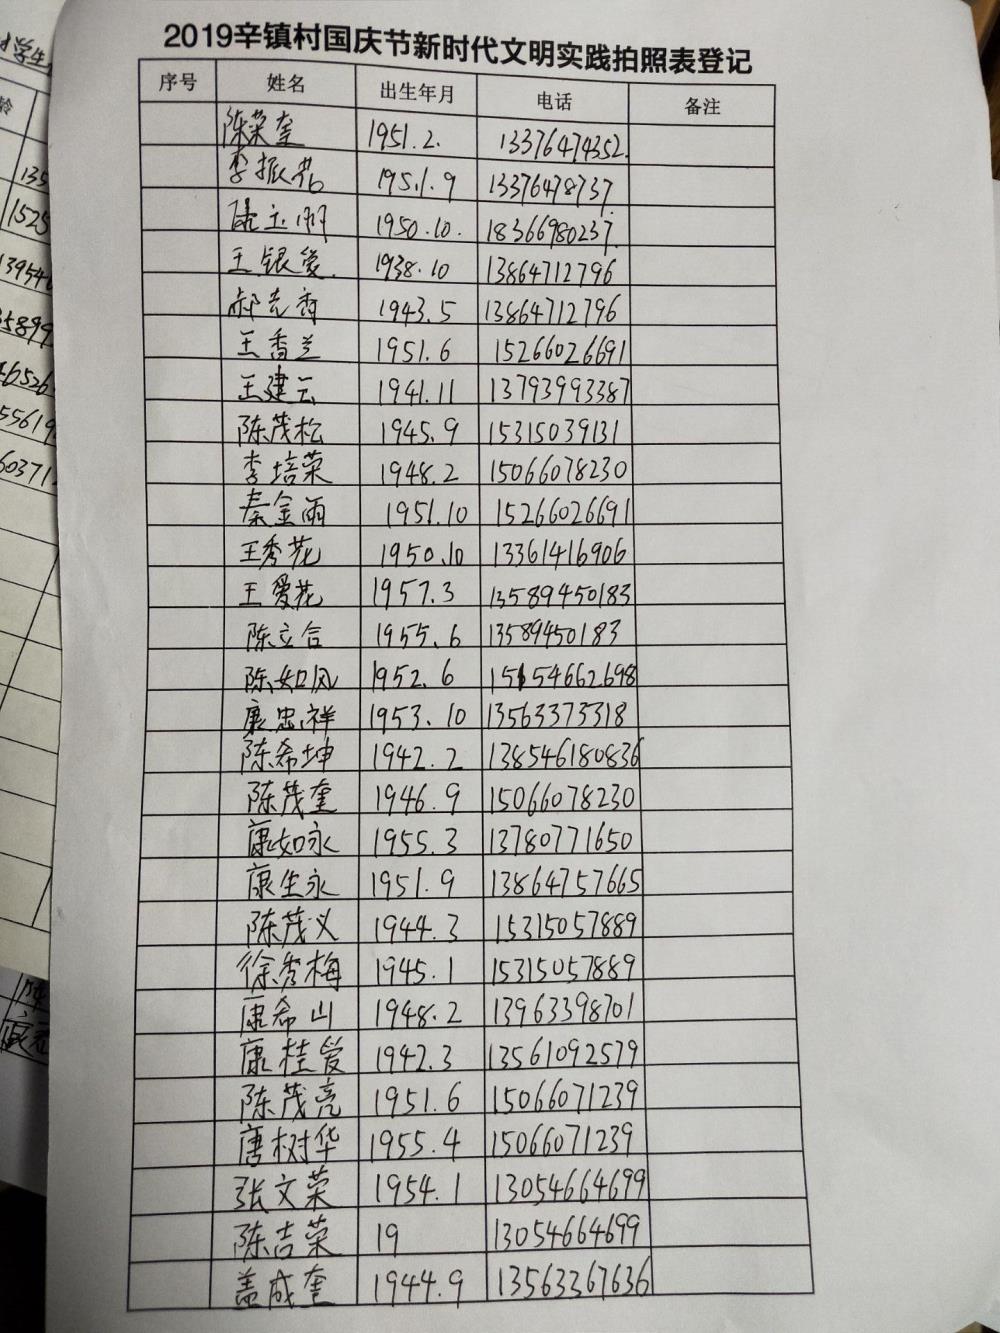 2019辛镇村国庆节新时代文明实践拍照表登记
序号 姓名 出生年月 电话 备注
陈荣奎 1951.2. 13376474352.
李振花 1951.9 13376478737.
1950.10. 18366980237.
王银爱. 1938.10 13864712796
郝克香 1943.5 13864712796
王香兰 1951.6 15266026691
王建云 1941.11 13793993387
陈茂松 1945.9 15315039131
李培荣 1948.2 15066078230
秦金雨 1951.10 15266026691
王秀花 1950.10 13361416906
王爱花 1957.3 13589450183
陈立合 1955.6 13589450183
陈如风 1952.6 15154662698
康忠祥 1953.10 13563373318
陈希坤 1942.2 138546180836
陈茂奎 1946.9 15066078230
康如永 1955.3 13780771650
康生永 1951.9 13864757665
陈茂义 1944.3 15315057889
徐秀梅 1945.1 15315057889
康希山 1948.2 13963398701
康桂爱 1942.3 13561092579
陈茂亮 1951.6 15066071239
唐树华 1955.4 15066071239
张文荣 1954.1 13054664699
陈吉荣 19 13054664699
盖成奎 1944.9 13563367636